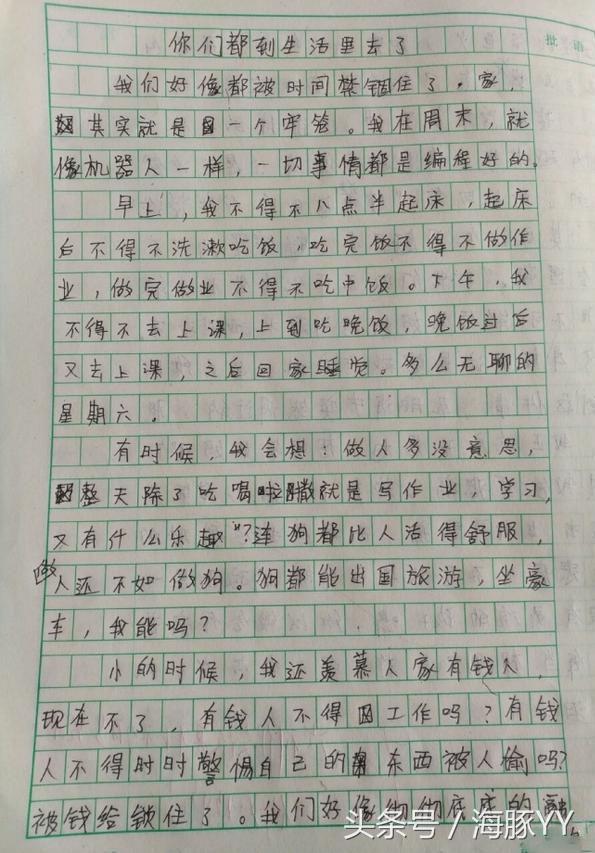 批语
你们都到生活里去了
我们好像都被时间禁锢住了。家,
其实就是一个牢笼。我在周末,就
像机器人一样,一切事情都是编程好的。
早上,我不得不八点半起床,起床
后不得不洗漱吃饭,吃完饭不得不做作
业,做完做业不得不吃中饭。下午,我
不得不去上课,上到吃晚饭,晚饭过后
又去上课,之后回家睡觉。多么无聊的
星期六。
有时候,我会想:做人多没意思,
整天除了吃喝啦撒就是写作业,学习,
又有什么乐趣"?连狗都比人活得舒服,
做人还不如做狗。狗都能出国旅游,坐豪
车,我能吗?
小的时候,我还羡慕人家有钱人,
现在不了,有钱人不得工作吗?有钱
人不得时时警惕自己的东西被人偷吗?
被钱给锁住了。我们好像彻彻底底的融
头条号/海豚YY